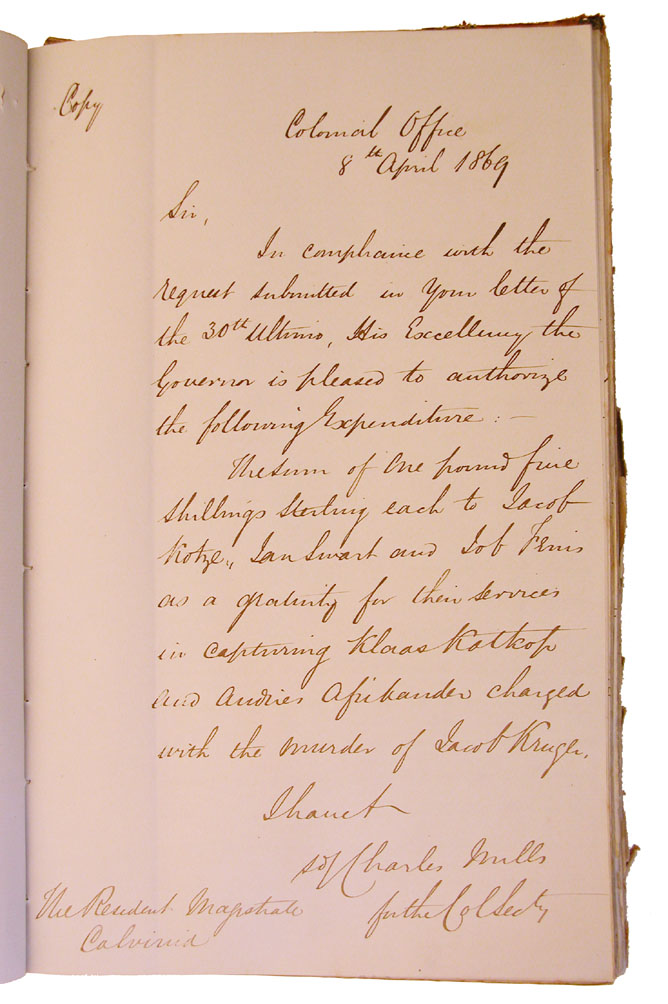 Copy
Colonial Office
8th April 1869
Sir,
In compliance with the
request submitted in your letter of
the 30th Ultimo, His Excellency the
Governor is pleased to authorize
the following Expenditure : —
The sum of One pound five
shillings sterling each to Jacob
Kotze, Jan Swart and Job
as a gratuity for their services
in capturing Klaas Katkop
and Andries Afrikander charged
with the murder of Jacob Kruger.
I have &c
sd/ Charles Mills
for the Col Secty
The Resident Magistrate
Calvinia